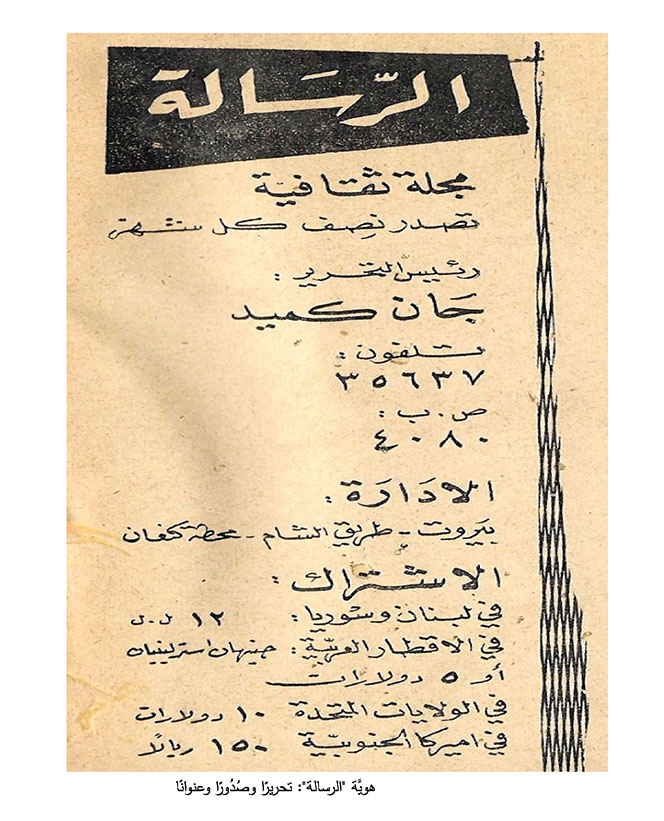 الرّسَالة
مجلة ثقافيّة
تصدر نِصف كل شهر
رئيس التحرير :
جَان كميد
تلفون :
٣٥٦٣٧
ص . ب :
٤٠٨٠
الادَارَة :
بَيروت - طريق الشام - محطة كنعان
الاشتراك :
في لبنان وسوريا : ١٢ ل.ل
في الاقطار العربيّة : جنيهان استرلينيان
أو ٥ دولارات
في الولايات المتحدة ١٠ دولارات
في اميركا الجنوبيّة ١٥٠ ريالًا
هويَّة "الرسالة": تحريرًا وصُدُورًا وعنوانًا